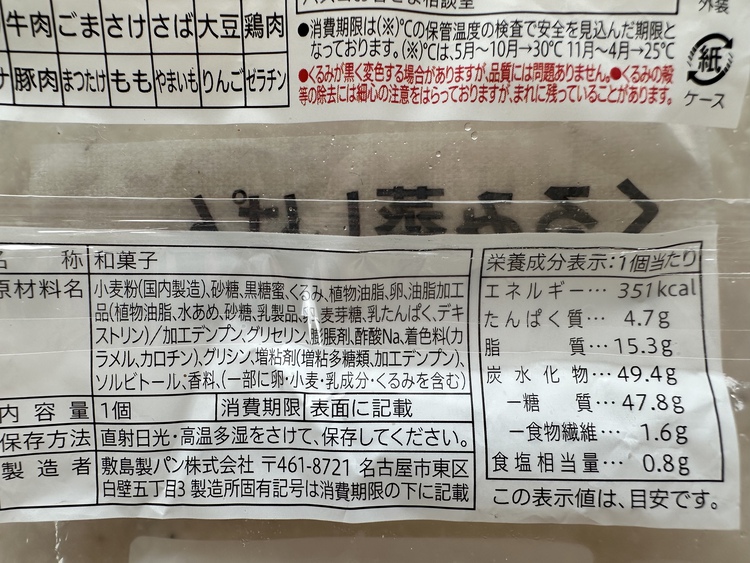 外装
牛肉 ごま さけ さば 大豆 鶏肉
豚肉 まつたけ もも やまいも りんご ゼラチン
●消費期限は(※)℃の保管温度の検査で安全を見込んだ期限と
なっております。(※)℃は、5月〜10月→30℃ 11月〜4月→25℃
●くるみが黒く変色する場合がありますが、品質には問題ありません。●くるみの殻
等の除去には細心の注意をはらっておりますが、まれに残っていることがあります。
紙
ケース
くるみ蒸しぱん
名称 和菓子
原材料名 小麦粉(国内製造)、砂糖、黒糖蜜、くるみ、植物油脂、卵、油脂加工
品(植物油脂、水あめ、砂糖、乳製品、卵、麦芽糖、乳たんぱく、デキ
ストリン)/加工デンプン、グリセリン、膨脹剤、酢酸Na、着色料(カ
ラメル、カロチン)、グリシン、増粘剤(増粘多糖類、加工デンプン)、
ソルビトール、香料、(一部に卵・小麦・乳成分・くるみを含む)
内容量 1個 消費期限 表面に記載
保存方法 直射日光・高温多湿をさけて、保存してください。
製造者 敷島製パン株式会社 〒461-8721 名古屋市東区
白壁五丁目3 製造所固有記号は消費期限の下に記載
栄養成分表示:1個当たり
エネルギー… 351kcal
たんぱく質… 4.7g
脂質… 15.3g
炭水化物… 49.4g
ー糖質… 47.8g
ー食物繊維… 1.6g
食塩相当量… 0.8g
この表示値は、目安です。